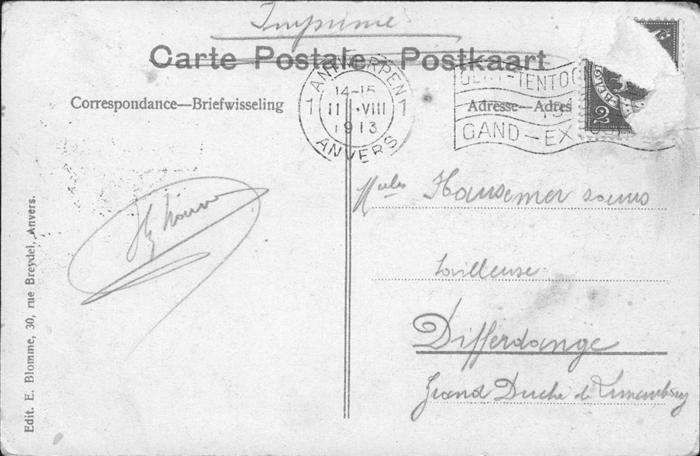 Imprimé
Carte Postale – Postkaart
Correspondance—Briefwisseling
Adresse—Adres
1 ANTWERPEN 1
14-15
11 VIII
1913
ANVERS
GENT-TENTOO
GAND-EX
2
Mlles Hansemer sœurs
tailleuse
Differdange
Grand Duché de Luxembourg
Edit. E. Blomme, 30, rue Breydel, Anvers.